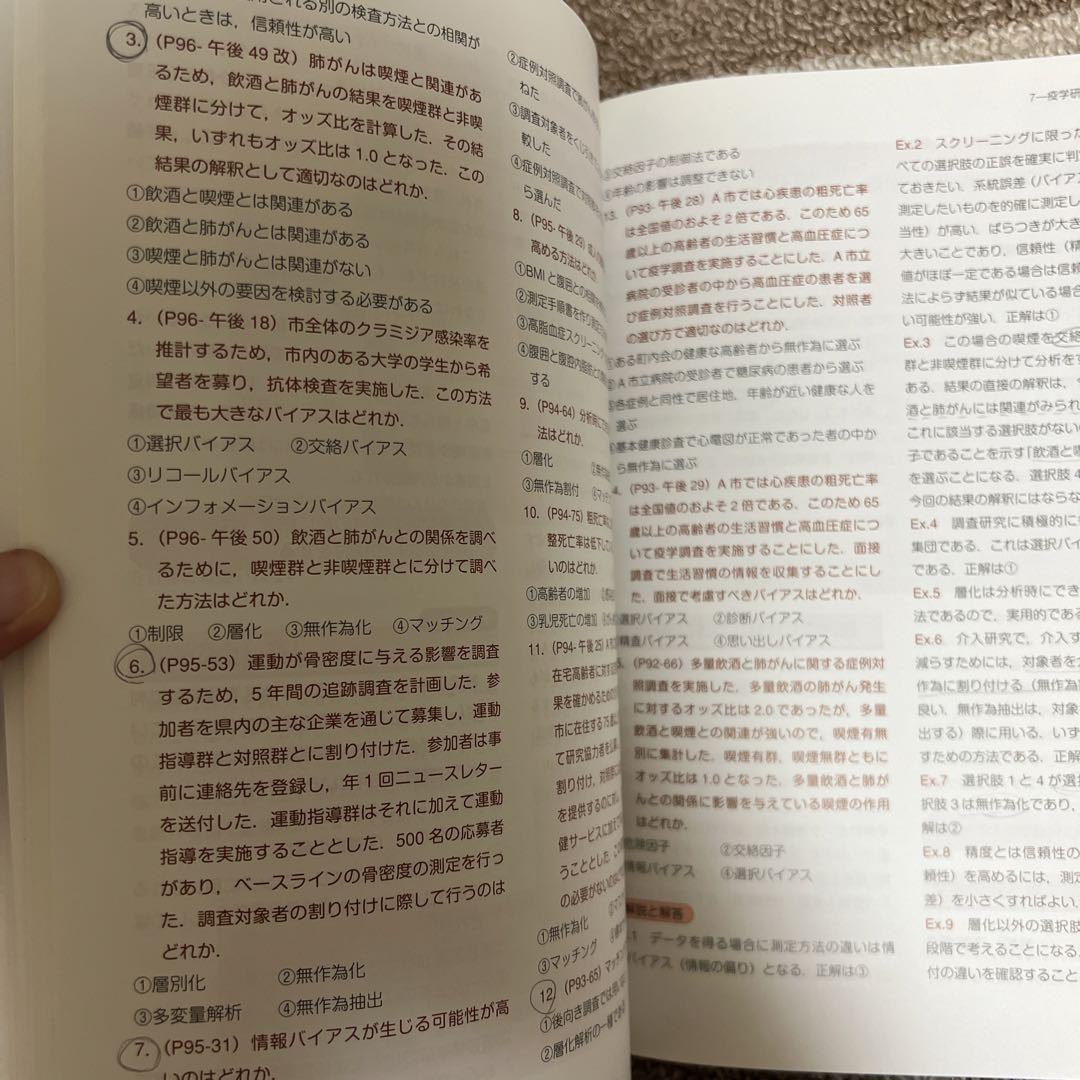 される別の検査方法との相関が
高いときは，信頼性が高い
3.（P96- 午後 49 改）肺がんは喫煙と関連があ
るため，飲酒と肺がんの結果を喫煙群と非喫
煙群に分けて，オッズ比を計算した．その結
果，いずれもオッズ比は 1.0 となった．この
結果の解釈として適切なのはどれか．
①飲酒と喫煙とは関連がある
②飲酒と肺がんとは関連がある
③喫煙と肺がんとは関連がない
④喫煙以外の要因を検討する必要がある
4.（P96- 午後 18）市全体のクラミジア感染率を
推計するため，市内のある大学の学生から希
望者を募り，抗体検査を実施した．この方法
で最も大きなバイアスはどれか．
①選択バイアス　②交絡バイアス
③リコールバイアス
④インフォメーションバイアス
5.（P96- 午後 50）飲酒と肺がんとの関係を調べ
るために，喫煙群と非喫煙群とに分けて調べ
た方法はどれか．
①制限　②層化　③無作為化　④マッチング
6.（P95-53）運動が骨密度に与える影響を調査
するため，5 年間の追跡調査を計画した．参
加者を県内の主な企業を通じて募集し，運動
指導群と対照群とに割り付けた．参加者は事
前に連絡先を登録し，年 1 回ニュースレター
を送付した．運動指導群はそれに加えて運動
指導を実施することとした．500 名の応募者
があり，ベースラインの骨密度の測定を行っ
た．調査対象者の割り付けに際して行うのは
どれか．
①層別化　②無作為化
③多変量解析　④無作為抽出
7.（P95-31）情報バイアスが生じる可能性が高
いのはどれか．
②症例対照調査で
ねた
③調査対象者をくじ
較した
④症例対照調査で
ら選んだ
8.（P95- 午後 29）
高める方法はどれか
①BMI と腹囲との
②測定手順書を作り
③高脂血症スクリーニング
④腹囲と腹腔内脂肪
する
9.（P94-64）分析
法はどれか．
①層化
③無作為割付　④マッチ
10.（P94-75）粗死亡率
整死亡率は低下
いのはどれか．
①高齢者の増加
③乳児死亡の増加
11.（P94- 午後 25）A
在宅高齢者に対する
果を確かめるための
市に在住する 75 歳
て研究協力者を
割り付け，対照群
を提供するのに対し
健サービスに加えて
うこととした．この
の必要がないの
①無作為化
③マッチング
12（P93-65）マッチ
①後向き調査では用い
②層化解析の一種である
7—疫学研
③交絡因子の制御法である
④年齢の影響は調整できない
3.（P93- 午後 28）A 市では心疾患の粗死亡率
は全国値のおよそ 2 倍である．このため 65
歳以上の高齢者の生活習慣と高血圧症につ
いて疫学調査を実施することにした．A 市立
病院の受診者の中から高血圧症の患者を選
び症例対照調査を行うことにした．対照者
の選び方で適切なのはどれか．
ある町内会の健康な高齢者から無作為に選ぶ
A 市立病院の受診者で糖尿病の患者から選ぶ
各症例と同性で居住地、年齢が近い健康な人を
選ぶ
基本健康診査で心電図が正常であった者の中か
ら無作為に選ぶ
4.（P93- 午後 29）A 市では心疾患の粗死亡率
は全国値のおよそ 2 倍である．このため 65
歳以上の高齢者の生活習慣と高血圧症につ
いて疫学調査を実施することにした．面接
調査で生活習慣の情報を収集することにし
た．面接で考慮すべきバイアスはどれか．
選択バイアス　②診断バイアス
精査バイアス　④思い出しバイアス
5.（P92-66）多量飲酒と肺がんに関する症例対
照調査を実施した．多量飲酒の肺がん発生
に対するオッズ比は 2.0 であったが，多量
飲酒と喫煙との関連が強いので，喫煙有無
別に集計した．喫煙有群，喫煙無群ともに
オッズ比は 1.0 となった．多量飲酒と肺が
んとの関係に影響を与えている喫煙の作用
はどれか．
危険因子　②交絡因子
情報バイアス　④選択バイアス
解説と解答
.1　データを得る場合に測定方法の違いは情
バイアス（情報の偏り）となる．正解は③
Ex.2　スクリーニングに限った
べての選択肢の正誤を確実に判
ておきたい．系統誤差（バイアス
測定したいものを的確に測定し
当性）が高い．ばらつきが大き
大きいことであり，信頼性（精
値がほぼ一定である場合は信頼
法によらず結果が似ている場合
い可能性が強い．正解は①
Ex.3　この場合の喫煙を交絡
群と非喫煙群に分けて分析を
ある．結果の直接の解釈は，
酒と肺がんには関連がみられ
これに該当する選択肢がない
子であることを示す「飲酒と喫
を選ぶことになる．選択肢 4
今回の結果の解釈にはならな
Ex.4　調査研究に積極的に
集団である．これは選択バイ
である．正解は①
Ex.5　層化は分析時にでき
法であるので，実用的である
Ex.6　介入研究で，介入す
減らすためには，対象者を
作為に割り付ける（無作為
良い．無作為抽出は，対象
出する）際に用いる．いず
すための方法である．正
Ex.7　選択肢 1 と 4 が選
択肢 3 は無作為化であり，
解は②
Ex.8　精度とは信頼性の
頼性）を高めるには，測定
差）を小さくすればよい．
Ex.9　層化以外の選択肢
段階で考えることになる
付の違いを確認すること